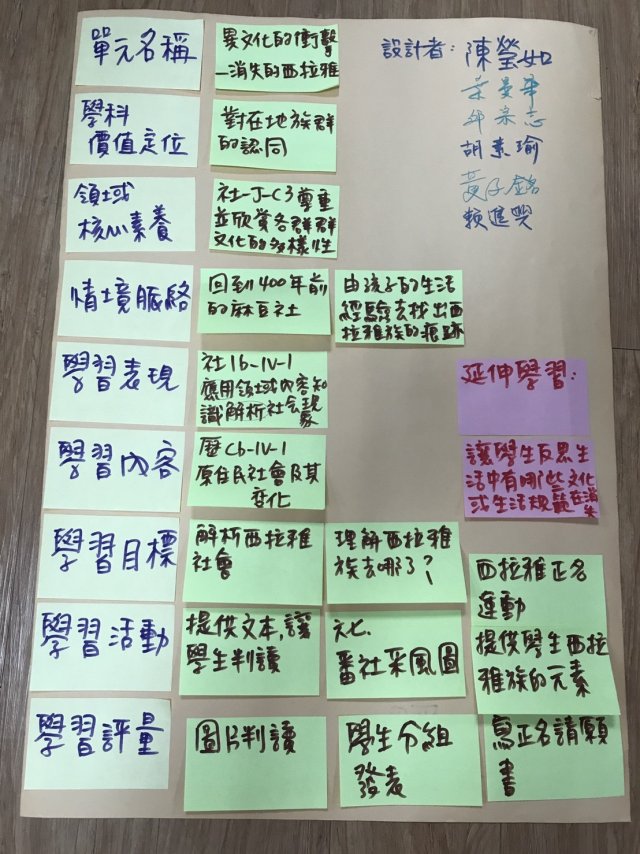 單元名稱
異文化的衝擊
—消失的西拉雅
設計者：陳瑩如
胡素瑜
賴進興
學科
價值定位
對在地族群
的認同
領域
核心素養
社-J-C3尊重
並欣賞各群群
文化的多樣性
情境脈絡
回到400年前
的麻豆社
由孩子的生活
經驗去找出西
拉雅族的痕跡
學習表現
社1b-IV-1
應用領域內容知
識解析社會現
象
延伸學習：
讓學生反思生
活中有哪些文化
或生活規範在消
失
學習內容
歷Cb-IV-1
原住民社會及其
變化
學習目標
解析西拉雅
社會
理解西拉雅
族去哪了？
西拉雅正名
運動
學習活動
提供文本,讓
學生判讀
番社采風圖
提供學生西拉
雅族的元素
學習評量
圖片判讀
學生分組
發表
寫正名請願
書